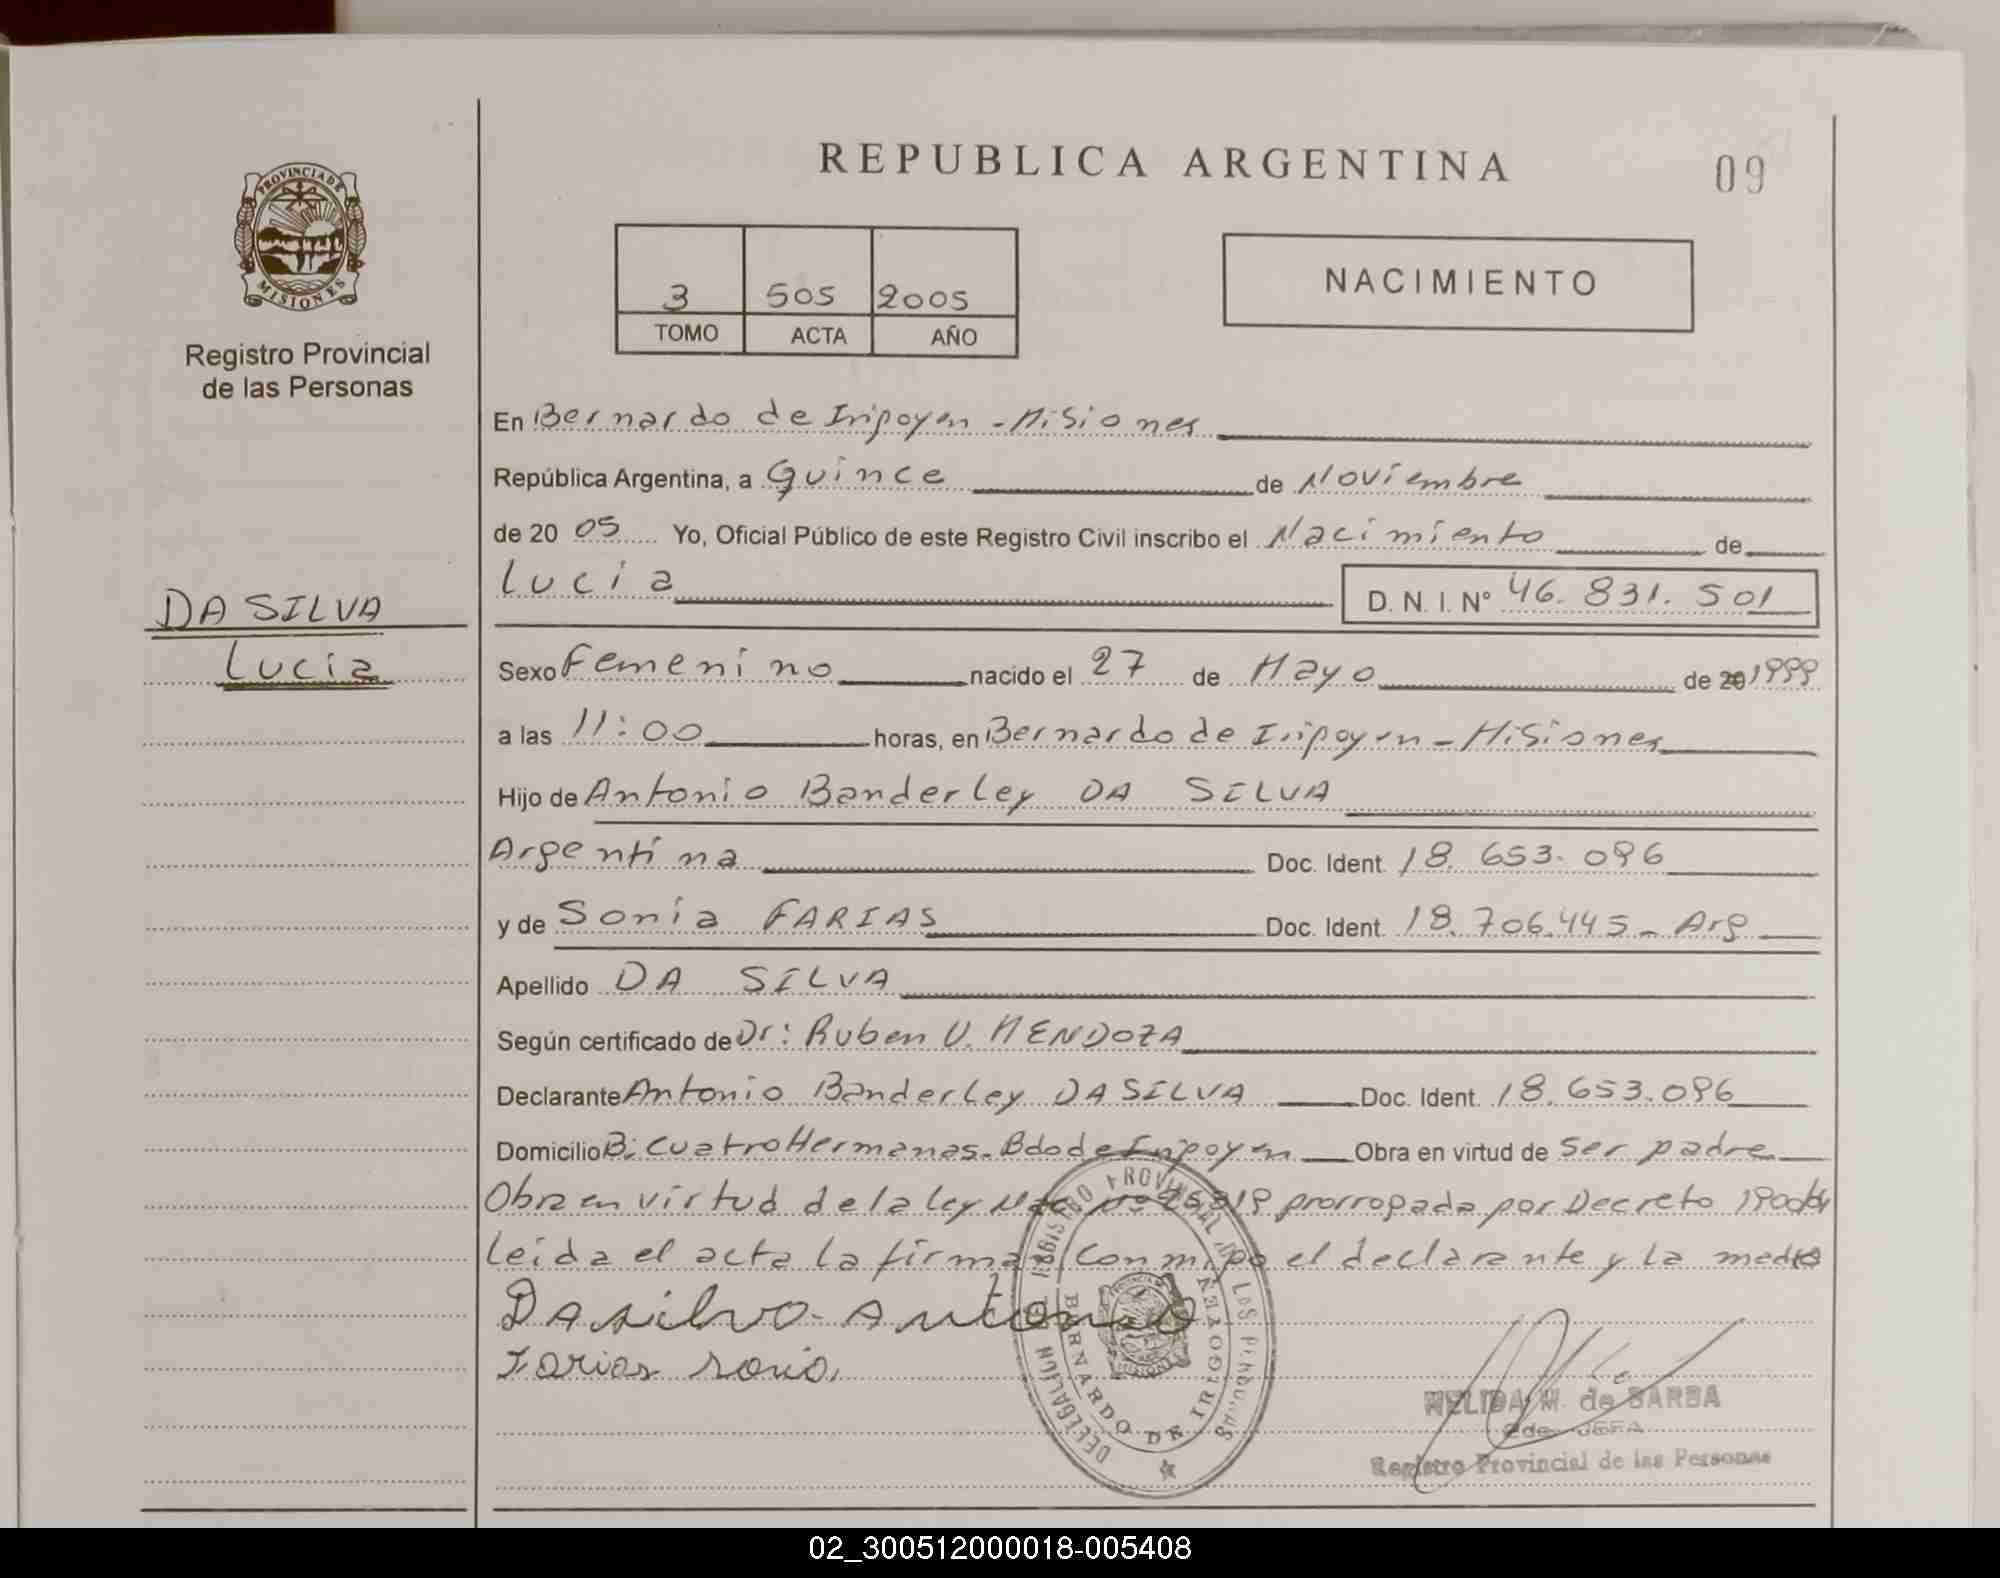 PROVINCIA DE
MISIONES
Registro Provincial
de las Personas
DA SILVA
Lucia
REPUBLICA ARGENTINA
09
3 505 2005
TOMO ACTA AÑO
NACIMIENTO
En Bernardo de Irigoyen - Misiones
República Argentina, a Quince de Noviembre
de 20 05 Yo, Oficial Público de este Registro Civil inscribo el Nacimiento de
Lucia D. N. I. Nº 46.831.501
Sexo Femenino nacido el 27 de Mayo de 20 1999
a las 11:00 horas, en Bernardo de Irigoyen - Misiones
Hijo de Antonio Banderley DA SILVA
Argentina Doc. Ident. 18.653.096
y de Sonia FARIAS Doc. Ident. 18.706.445 - Arg
Apellido DA SILVA
Según certificado de Dr: Ruben V. MENDOZA
Declarante Antonio Banderley DA SILVA Doc. Ident. 18.653.096
Domicilio B: Cuatro Hermanas. Bdo de Irigoyen Obra en virtud de ser padre
Obra en virtud de la ley Nac Nº prorrogada por Decreto
Leida el acta la firman conmigo el declarante y la madre
Da silva Antonio
Farias Sonia
DELEGACION DEL REGISTRO PROVINCIAL DE LAS PERSONAS
BERNARDO DE IRIGOYEN
NELIDA M. de BARBA
2da. JEFA
Registro Provincial de las Personas
02_300512000018-005408